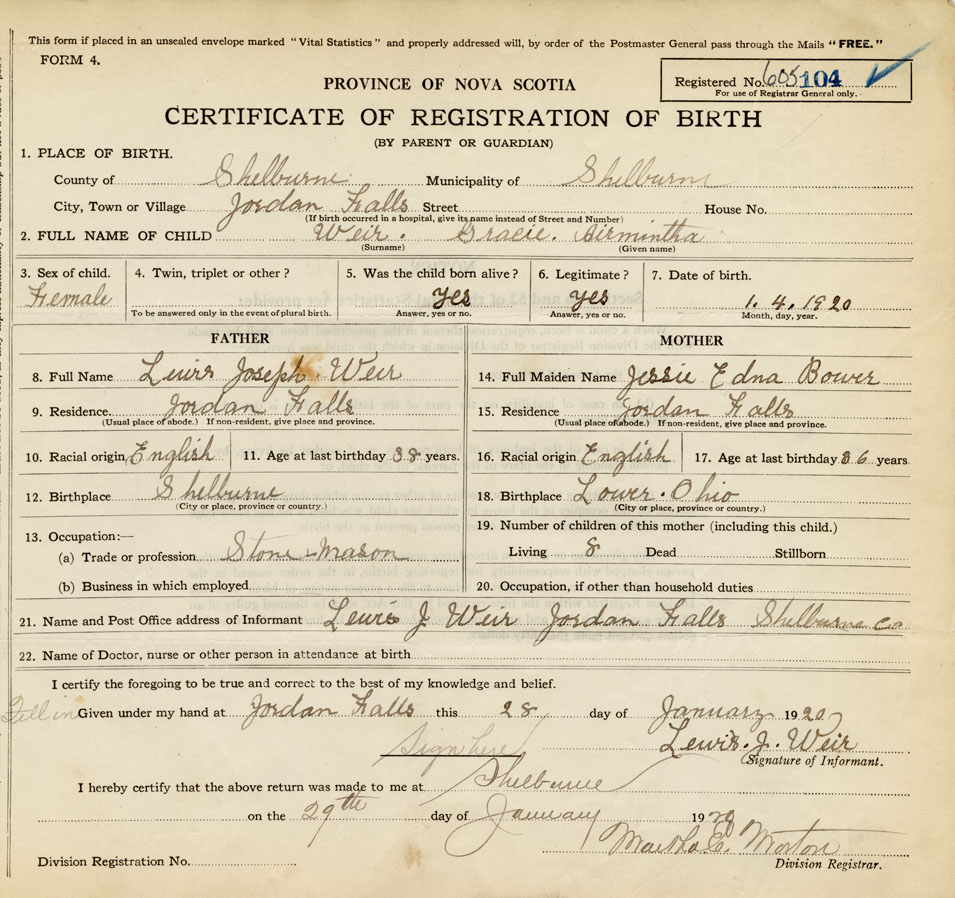 This form if placed in an unsealed envelope marked "Vital Statistics" and properly addressed will, by order of the Postmaster General pass through the Mails "FREE."
FORM 4.
Registered No. 605 104
For use of Registrar General only.
PROVINCE OF NOVA SCOTIA
CERTIFICATE OF REGISTRATION OF BIRTH
(BY PARENT OR GUARDIAN)
1. PLACE OF BIRTH.
County of Shelburne Municipality of Shelburne
City, Town or Village Jordan Falls Street House No.
(If birth occurred in a hospital, give its name instead of Street and Number)
2. FULL NAME OF CHILD Weir. Gracie. Airmintha
(Surname) (Given name)
3. Sex of child. 4. Twin, triplet or other? 5. Was the child born alive? 6. Legitimate? 7. Date of birth.
Female yes yes 1. 4. 1920
To be answered only in the event of plural birth. Answer, yes or no. Answer, yes or no. Month, day, year.
FATHER MOTHER
8. Full Name Lewis Joseph. Weir 14. Full Maiden Name Jessie Edna Bower
9. Residence. Jordan Falls 15. Residence Jordan Falls
(Usual place of abode.) If non-resident, give place and province. (Usual place of abode.) If non-resident, give place and province.
10. Racial origin English 11. Age at last birthday 38 years. 16. Racial origin English 17. Age at last birthday 36 years
12. Birthplace Shelburne 18. Birthplace Lower. Ohio
(City or place, province or country.) (City or place, province or country.)
13. Occupation:— 19. Number of children of this mother (including this child.)
(a) Trade or profession Stone-Mason Living 8 Dead Stillborn
(b) Business in which employed 20. Occupation, if other than household duties
21. Name and Post Office address of Informant Lewis J Weir Jordan Falls Shelburne Co
22. Name of Doctor, nurse or other person in attendance at birth
I certify the foregoing to be true and correct to the best of my knowledge and belief.
Fill in Given under my hand at Jordan Falls this 28 day of January 1920
Sign here Lewis. J. Weir
Signature of Informant.
I hereby certify that the above return was made to me at Shelburne
on the 29th day of January 1920
Martha E. Morton
Division Registration No. Division Registrar.